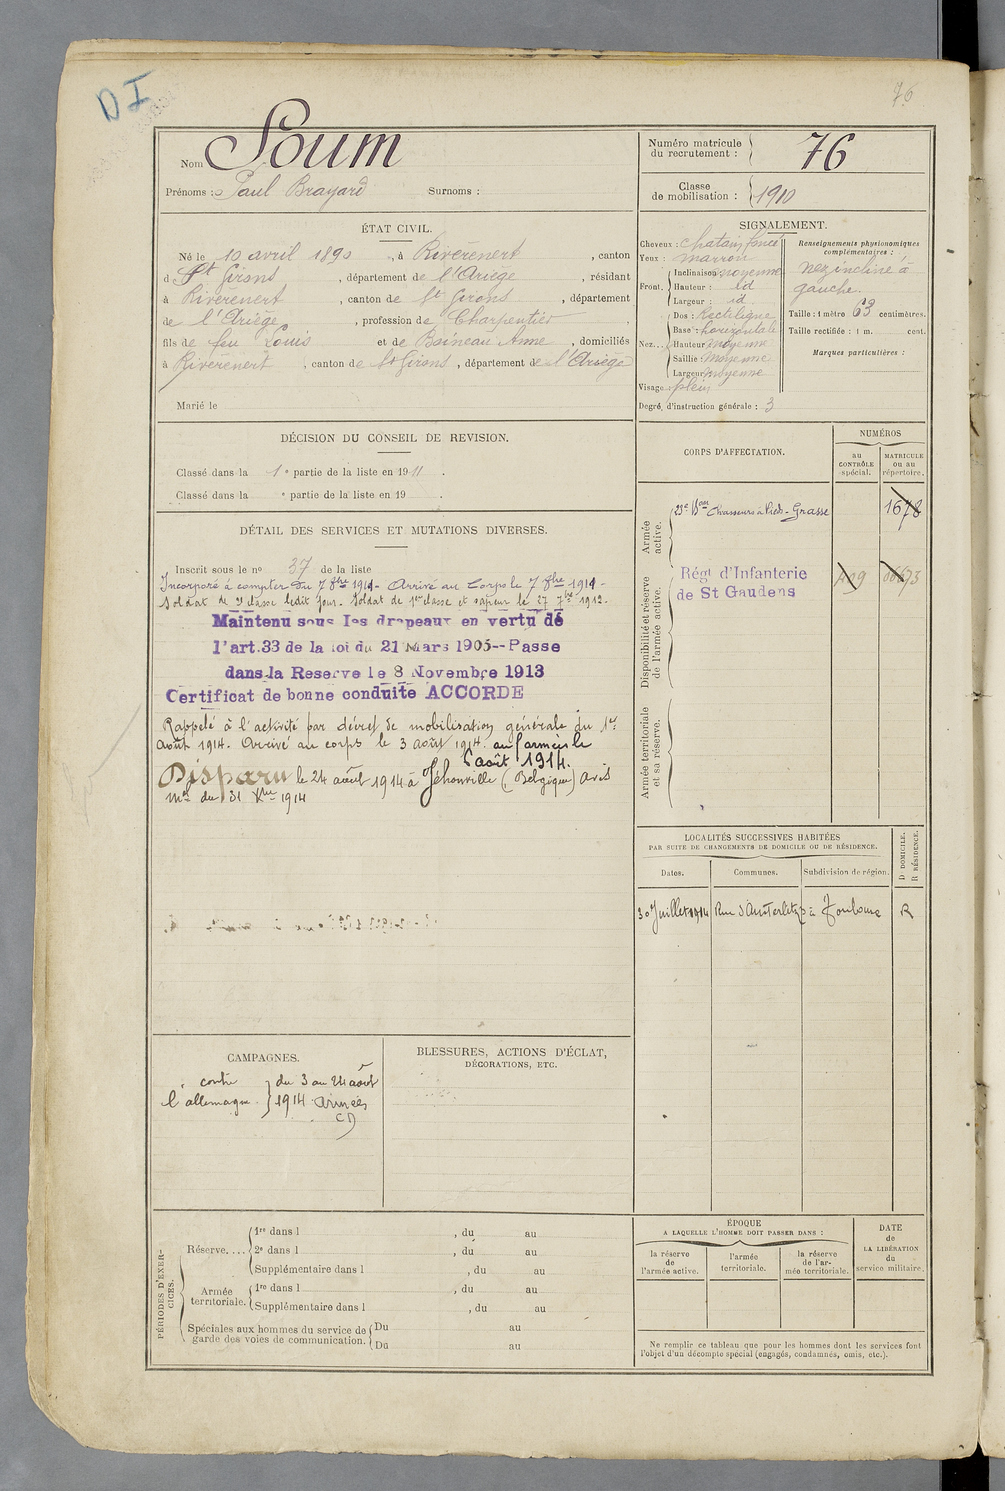 D I
76
Nom Soum
Prénoms : Paul Brayard Surnoms :
Numéro matricule du recrutement : 76
Classe de mobilisation : 1910
ÉTAT CIVIL.
Né le 10 avril 1890, à Riverenert, canton
d St Girons, département de l'Ariège, résidant
à Riverenert, canton de St Girons, département
de l'Ariège, profession de Charpentier
fils de feu Louis et de Boineau Anne, domiciliés
à Riverenert, canton de St Girons, département de l'Ariège
Marié le
SIGNALEMENT.
Cheveux : chatain foncé
Yeux : marron
Front. Inclinaison moyenne
Hauteur : id
Largeur : id
Nez... Dos : Rectiligne
Base : horizontale
Hauteur moyenne
Saillie moyenne
Largeur moyenne
Visage : plein
Degré d'instruction générale : 3
Renseignements physionomiques complémentaires :
nez incliné à
gauche.
Taille : 1 mètre 63 centimètres.
Taille rectifiée : 1 m. cent.
Marques particulières :
DÉCISION DU CONSEIL DE REVISION.
Classé dans la 1e partie de la liste en 1911.
Classé dans la e partie de la liste en 19 .
DÉTAIL DES SERVICES ET MUTATIONS DIVERSES.
Inscrit sous le no 37 de la liste
Incorporé à compter du 7 8bre 1911 - Arrivé au Corps le 7 8bre 1911 -
Soldat de 2e classe ledit jour. Soldat de 1ere classe et sapeur le 27 7bre 1912.
Maintenu sous les drapeaux en vertu de
l'art.33 de la loi du 21 Mars 1905--Passe
dans la Reserve le 8 Novembre 1913
Certificat de bonne conduite ACCORDE
Rappelé à l'activité par décret de mobilisation générale du 1er
Août 1914. Arrivé au corps le 3 août 1914. aux armées le
août 1914.
Disparu le 24 août 1914 à Jéhonville (Belgique) avis
Mel du 31 Xbre 1914
CORPS D'AFFECTATION.
NUMÉROS
au CONTRÔLE spécial.
MATRICULE ou au répertoire.
Armée active.
23e Bon Chasseurs à Pied - Grasse 1678
Disponibilité et réserve de l'armée active.
Régt d'Infanterie
de St Gaudens
Armée territoriale et sa réserve.
LOCALITÉS SUCCESSIVES HABITÉES
PAR SUITE DE CHANGEMENTS DE DOMICILE OU DE RÉSIDENCE.
D DOMICILE.
R RÉSIDENCE.
Dates. Communes. Subdivision de région.
30 Juillet 1914 Rue d'Austerlitz à Toulouse R
CAMPAGNES.
contre l'allemagne du 3 au 24 août
1914 armées
CD
BLESSURES, ACTIONS D'ÉCLAT,
DÉCORATIONS, ETC.
PÉRIODES D'EXERCICES.
Réserve.... 1re dans l , du au
2e dans l , du au
Supplémentaire dans l , du au
Armée territoriale. 1re dans l , du au
Supplémentaire dans l , du au
Spéciales aux hommes du service de garde des voies de communication. Du au
Du au
ÉPOQUE
A LAQUELLE L'HOMME DOIT PASSER DANS :
la réserve de l'armée active.
l'armée territoriale.
la réserve de l'armée territoriale.
DATE de LA LIBÉRATION du service militaire.
Ne remplir ce tableau que pour les hommes dont les services font
l'objet d'un décompte spécial (engagés, condamnés, omis, etc.).